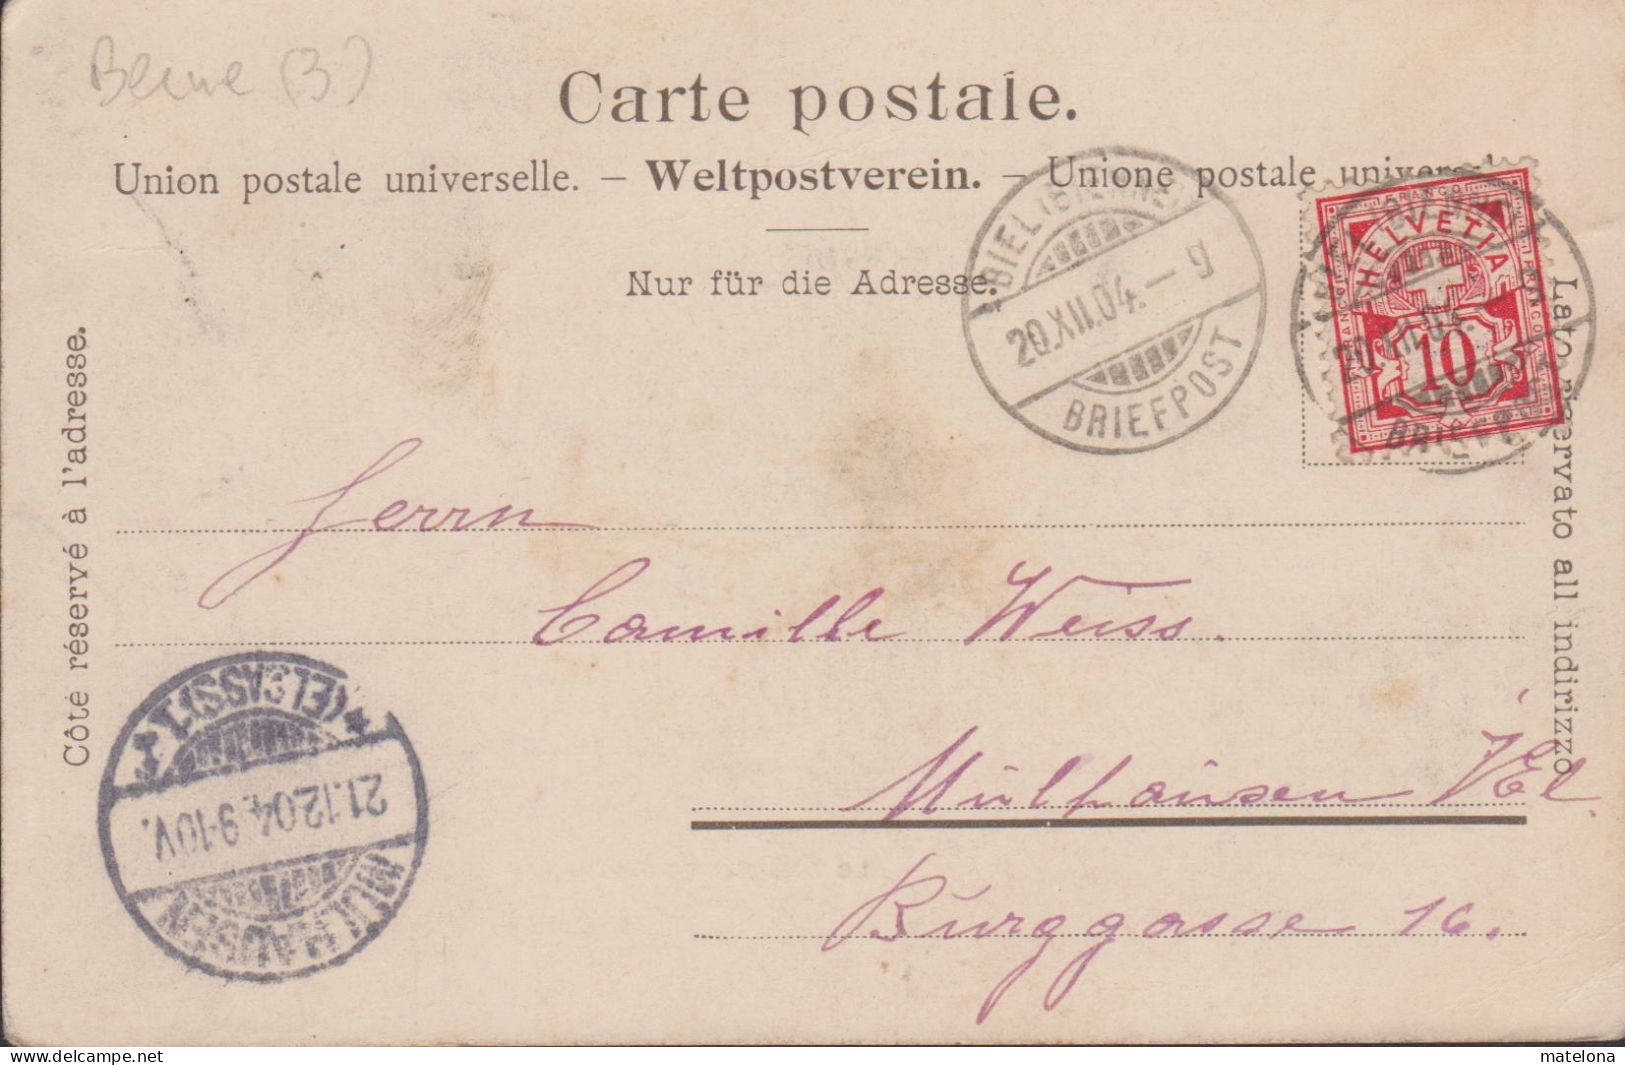 Berne (3)
Carte postale.
Union postale universelle. – Weltpostverein. – Unione postale univers
Nur für die Adresse.
Côté réservé à l'adresse.
Lato riservato all indirizzo
BIEL (BIENNE)
20.XII.04.–9
BRIEFPOST
FRANCO
HELVETIA
FRANCO
FRANCO
10
20.XII.04.
BRIEFPOST
Herrn
Camille Weiss.
Mülhausen i/El.
Burggasse 16.
MÜLHAUSEN
21.12.04.9-10V.
* (ELSASS) 1 *
www.delcampe.net
matelona